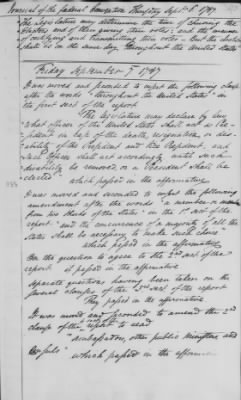 Journal of the federal Convention Thursday Sept. 6. 1787
The Legislature may determine the time of chusing the
Electors and of their giving their votes; and the manner
of certifying and transmitting their votes - But the election
shall be on the same day throughout the United States
Friday September 7 1787
It was moved and seconded to insert the following clause
after the words "throughout the United States" in
the first sect of the report
The Legislature may declare by law
what officer of the United States shall act as Pre-
sident in case of the death, resignation, or dis-
ability of the President and Vice President; and
such Officer shall act accordingly, until such
disability be removed, or a President shall be
elected
which passed in the affirmative
It was moved and seconded to insert the following
amendment after the words "a member or members
from two thirds of the States" in the 1st sect. of the
report. "and the concurrence of a majority of all the
States shall be necessary to make such choice"
which passed in the affirmative
On the question to agree to the 2nd sect. of the
report it passed in the affirmative
separate questions having been taken on the
several clauses of the 3rd sect. of the report
They passed in the affirmative
It was moved and seconded to amend the 3rd
clause of the report to read
"ambassadors, other public ministers and
Consuls"
which passed in the affirmative